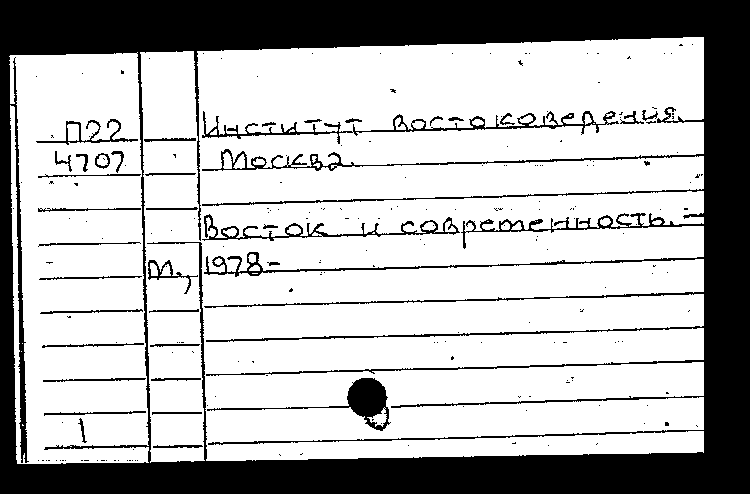 П22 Институт востоковедения.
4707 Москва.
Восток и современность. —
М., 1978-
1